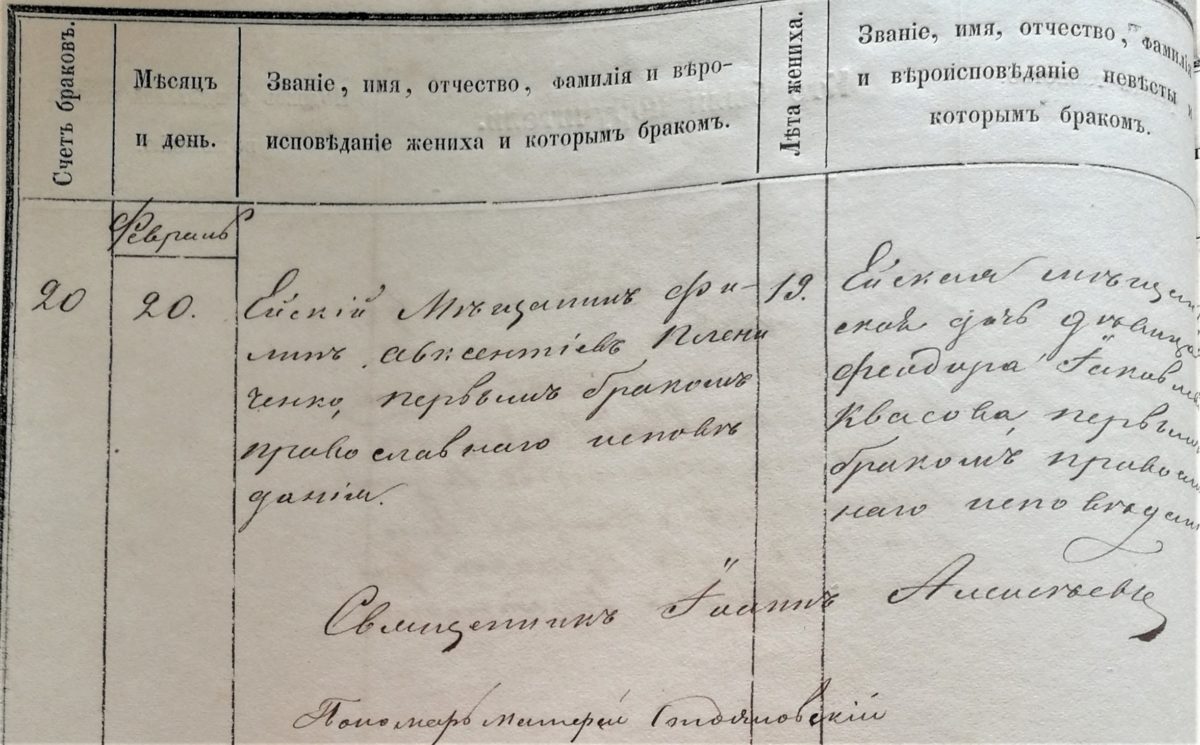 Счетъ браковъ.
Мѣсяцъ
и день.
Званіе, имя, отчество, фамилія и вѣро-
исповѣданіе жениха и которымъ бракомъ.
Лѣта жениха.
Званіе, имя, отчество, фамилія
и вѣроисповѣданіе невѣсты и
которымъ бракомъ.
Февраль
20
20.
Ейскій Мѣщанинъ Фи-
липъ Авксентіевъ Плени
ченко, первымъ бракомъ
православнаго исповѣ
данія.
19.
Ейская мѣщан
ская дочь дѣвица
Феодора Іаковле
Квасова, первымъ
бракомъ правосла
наго исповѣдан
Священникъ Іоаннъ Алексѣевъ
Пономарь Матѳей Стояновскій